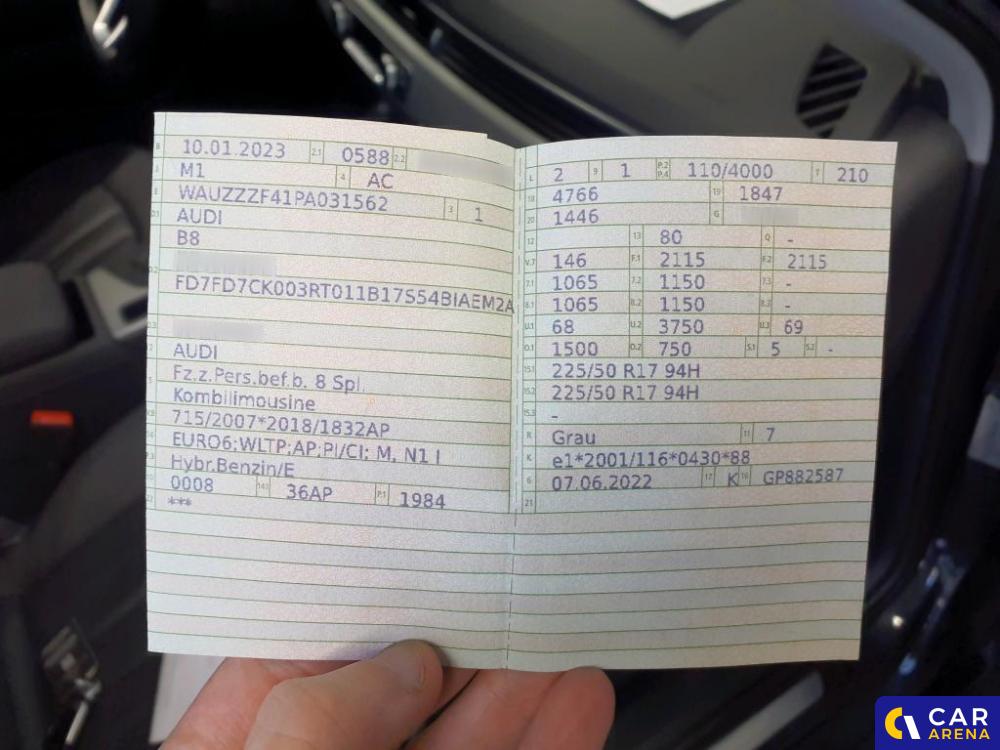 B 10.01.2023 2.1 0588 2.2
J M1 4 AC
E WAUZZZF41PA031562 3 1
D.1 AUDI
B8
D.2
FD7FD7CK003RT011B17S54BIAEM2A
D.3
2 AUDI
5 Fz.z.Pers.bef.b. 8 Spl.
Kombilimousine
V.9 715/2007*2018/1832AP
14 EURO6;WLTP;AP;PI/CI; M, N1 I
P.3 Hybr.Benzin/E
10 0008 14.1 36AP P.1 1984
22 ***
L 2 9 1 P.2 P.4 110/4000 T 210
18 4766 19 1847
20 1446 G
12 13 80 Q -
V.7 146 F.1 2115 F.2 2115
7.1 1065 7.2 1150 7.3 -
8.1 1065 8.2 1150 8.3 -
U.1 68 U.2 3750 U.3 69
O.1 1500 O.2 750 S.1 5 S.2 -
15.1 225/50 R17 94H
15.2 225/50 R17 94H
15.3 -
R Grau 11 7
K e1*2001/116*0430*88
6 07.06.2022 17 K 16 GP882587
21
CAR
ARENA